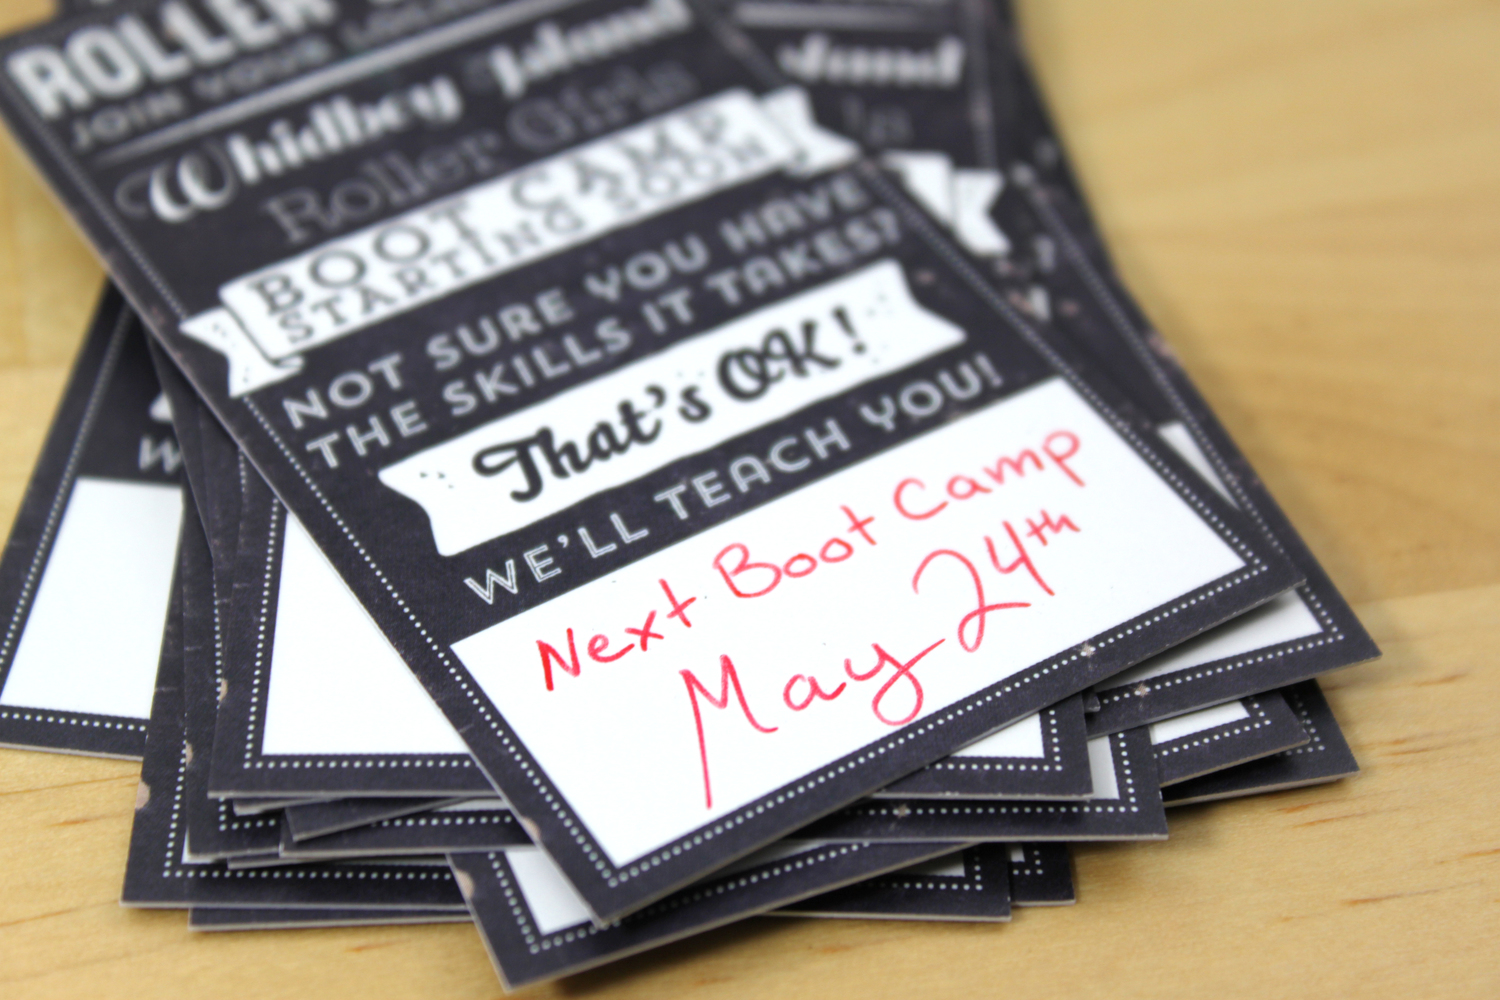 ROLLER
JOIN YOUR LOCAL
Whidbey Island
Roller Girls
BOOT CAMP
STARTING SOON
NOT SURE YOU HAVE
THE SKILLS IT TAKES?
That's OK!
WE'LL TEACH YOU!
Next Boot Camp
May 24th